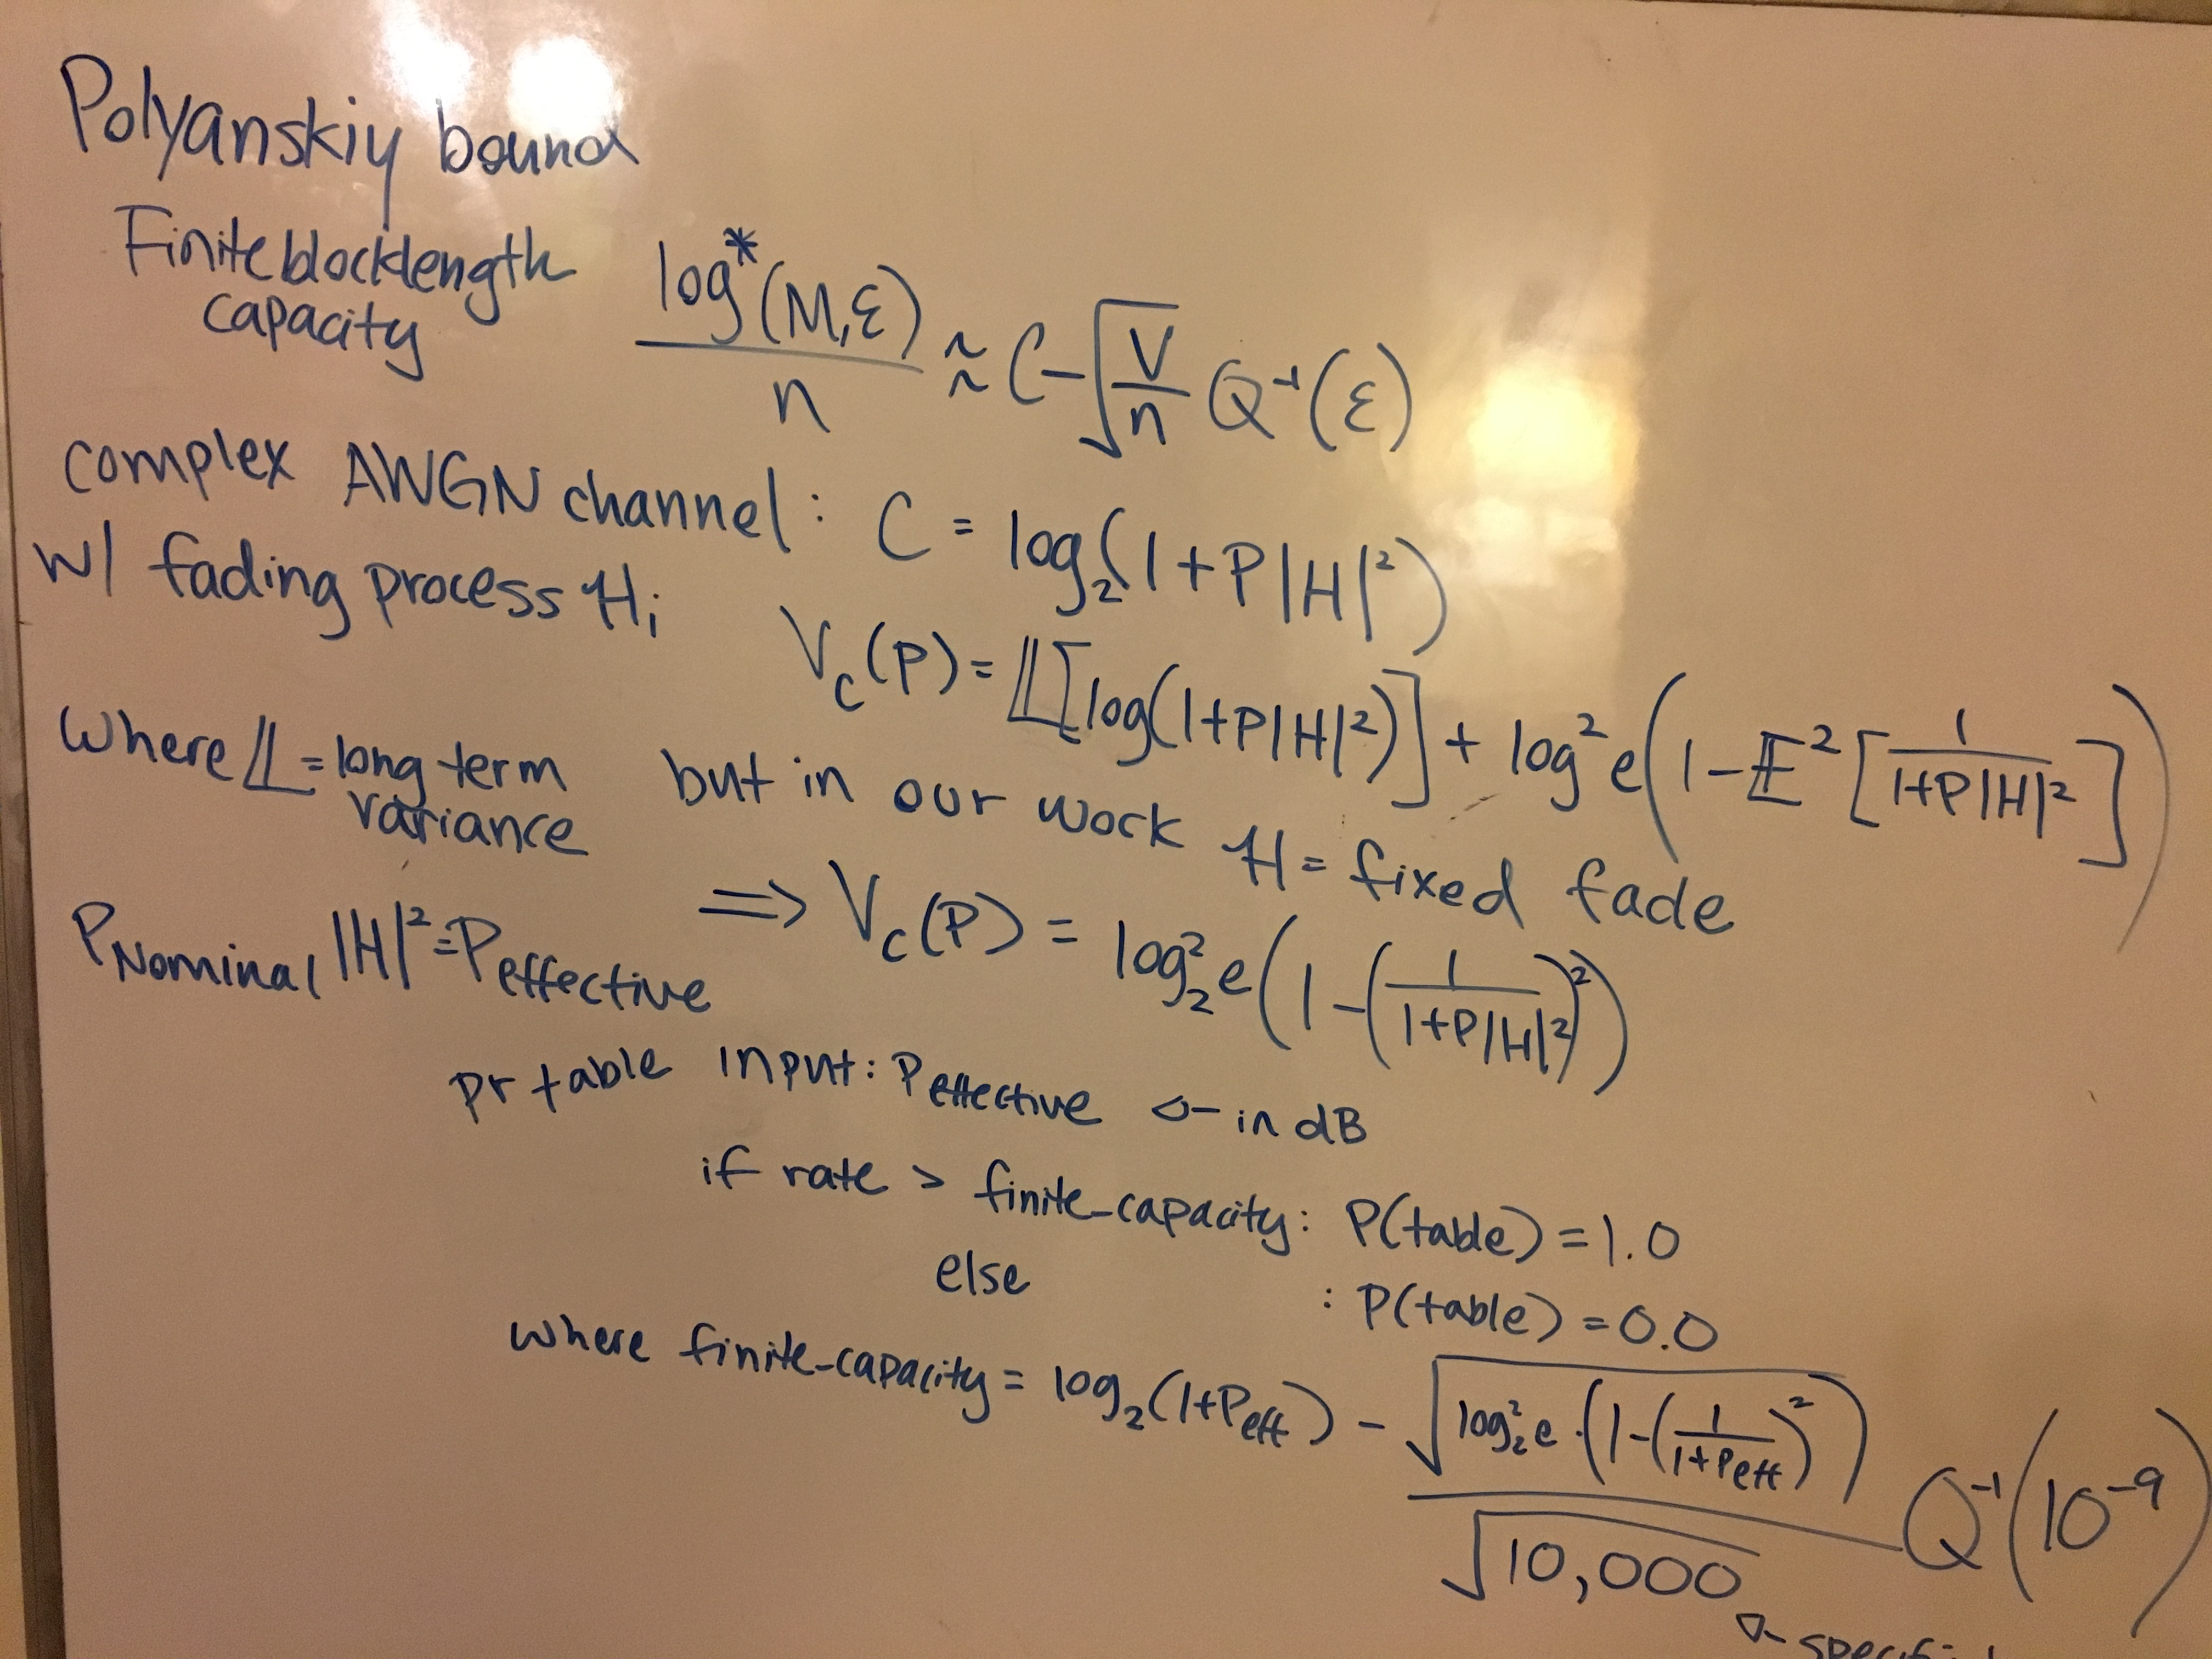 Polyanskiy bound
Finite blocklength
capacity
log*(M,ε)/n ≈ C - √(V/n) Q⁻¹(ε)
complex AWGN channel: C = log₂(1+P|H|²)
w/ fading process Hᵢ
V_c(P) = 𝕃[log(1+P|H|²)] + log²e(1-𝔼²[1/(1+P|H|²)])
where 𝕃 = long term
variance
but in our work H = fixed fade
⇒ V_c(P) = log₂²e(1-(1/(1+P|H|²))²)
P_Nominal |H|² = P_effective
pr table input: P_effective ← in dB
if rate > finite_capacity: P(table) = 1.0
else : P(table) = 0.0
where finite-capacity = log₂(1+P_eff) - √(log₂²e·(1-(1/(1+P_eff))²))/√10,000 Q⁻¹(10⁻⁹)